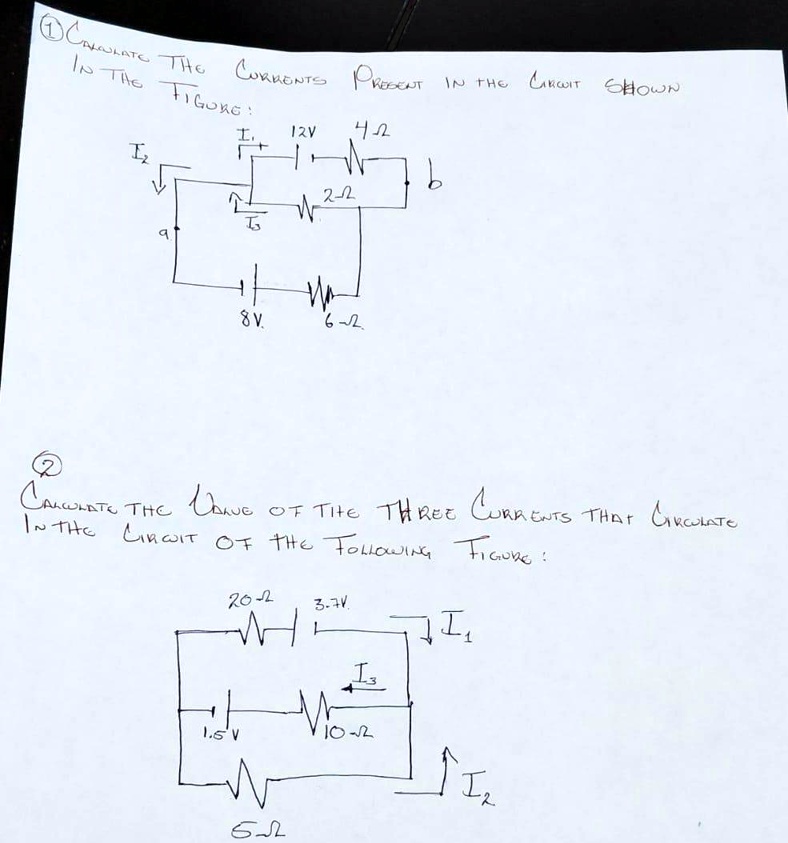 ① CALCULATE THE CURRENTS PRESENT IN THE CIRCUIT SHOWN
IN THE FIGURE:
I₁ 12V 4Ω
+
I₂
b
2Ω
I₃
a
8V. 6Ω.
②
CALCULATE THE VALUE OF THE THREE CURRENTS THAT CIRCULATE
IN THE CIRCUIT OF THE FOLLOWING FIGURE:
20Ω 3.7V.
I₁
I₃
1.5V 10Ω
I₂
5Ω